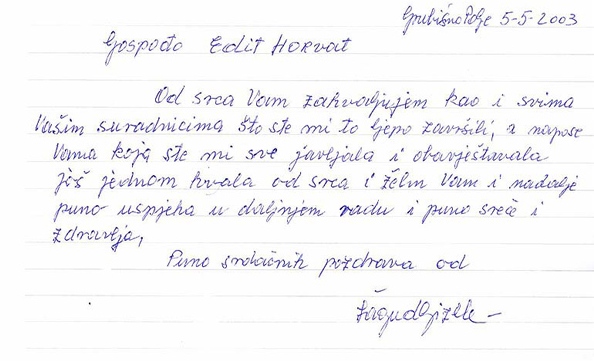 Grubišno Polje 5-5-2003
Gospođo Edit Horvat
Od srca Vam zahvaljujem kao i svima
Vašim suradnicima što ste mi to ljepo završili, a napose
Vama koja ste mi sve javljala i obavještavala
još jednom hvala od srca i želim Vam i nadalje
puno uspjeha u daljnjem radu i puno sreće i
zdravlja,
Puno srdačnih pozdrava od